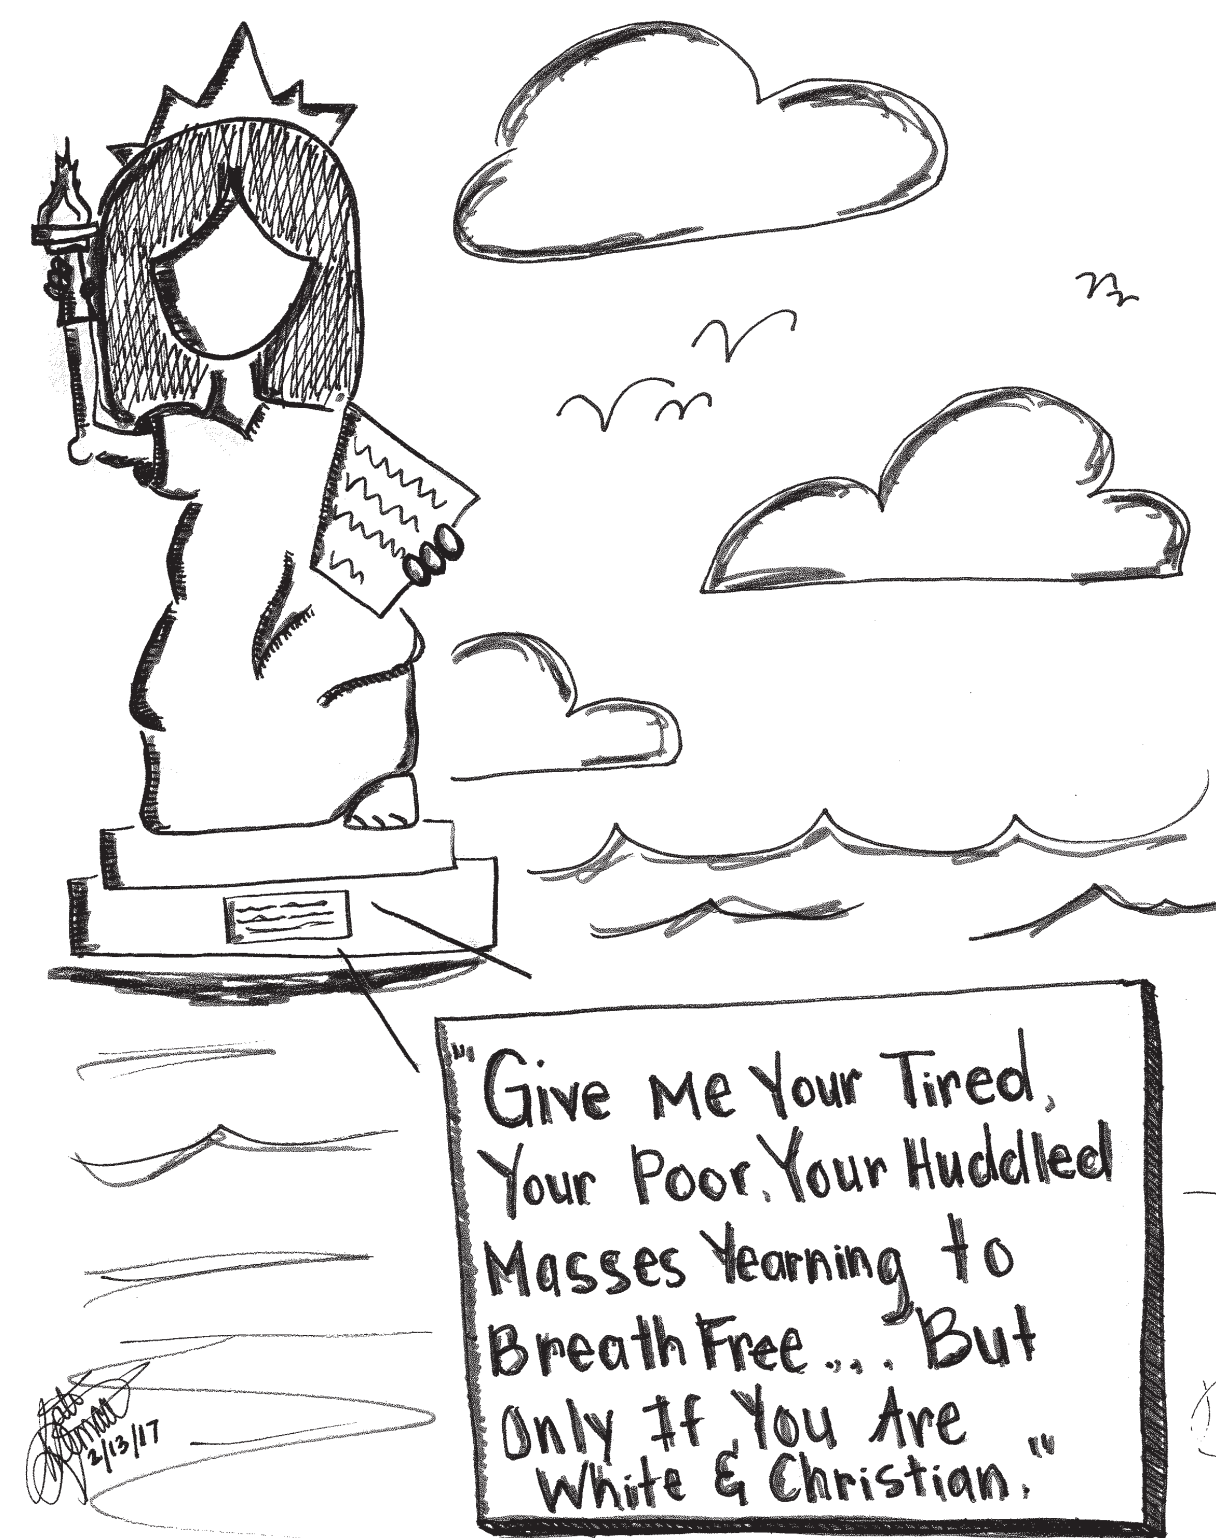 "Give Me Your Tired,
Your Poor, Your Huddled
Masses Yearning to
Breath Free.... But
Only If You Are
White & Christian."
2/13/17